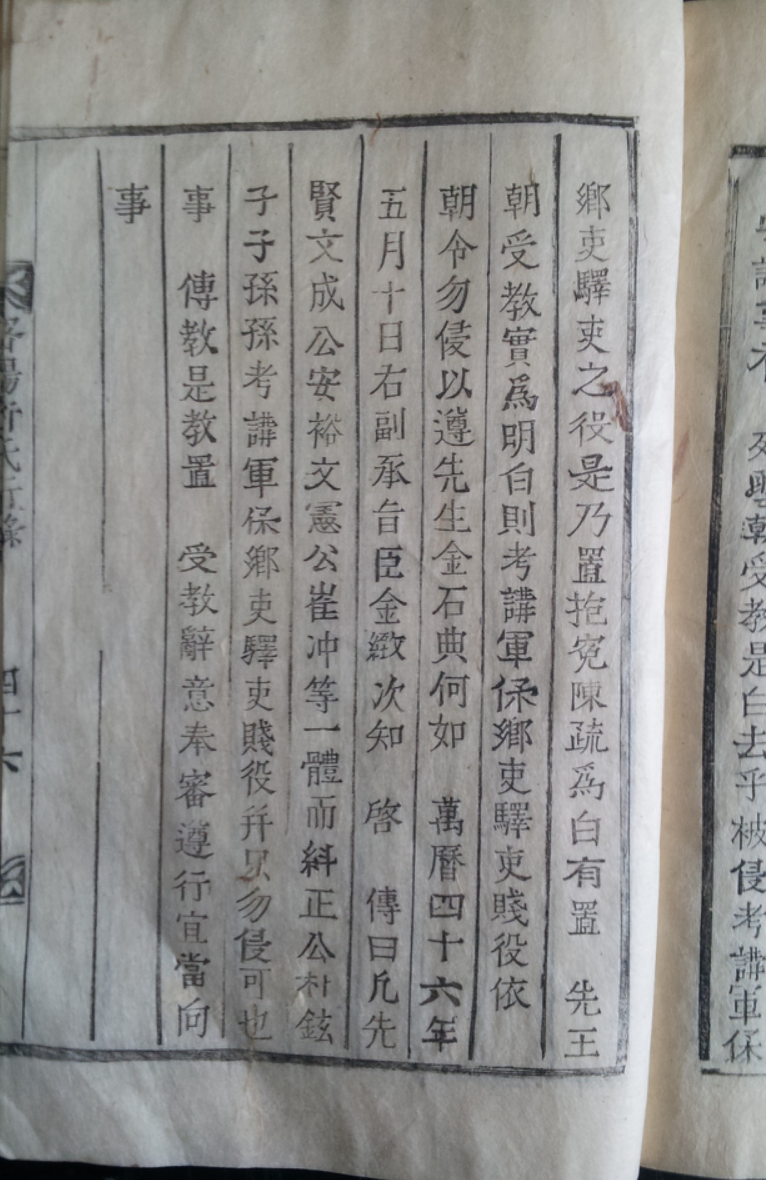 侵考講軍保
列聖朝受教是白去乎被
鄉吏驛吏之役是乃置抱寃陳疏爲白有置 先王
朝受教實爲明白則考講軍保鄉吏驛吏賤役依
朝令勿侵以遵先生金石典何如 萬曆四十六年
五月十日右副承旨臣金緻次知 啓 傳曰凡先
賢文成公安裕文憲公崔冲等一體而糾正公朴鉉
子子孫孫考講軍保鄉吏驛吏賤役并只勿侵可也
事 傳教是教置 受教辭意奉審遵行宜當向
事
四十六